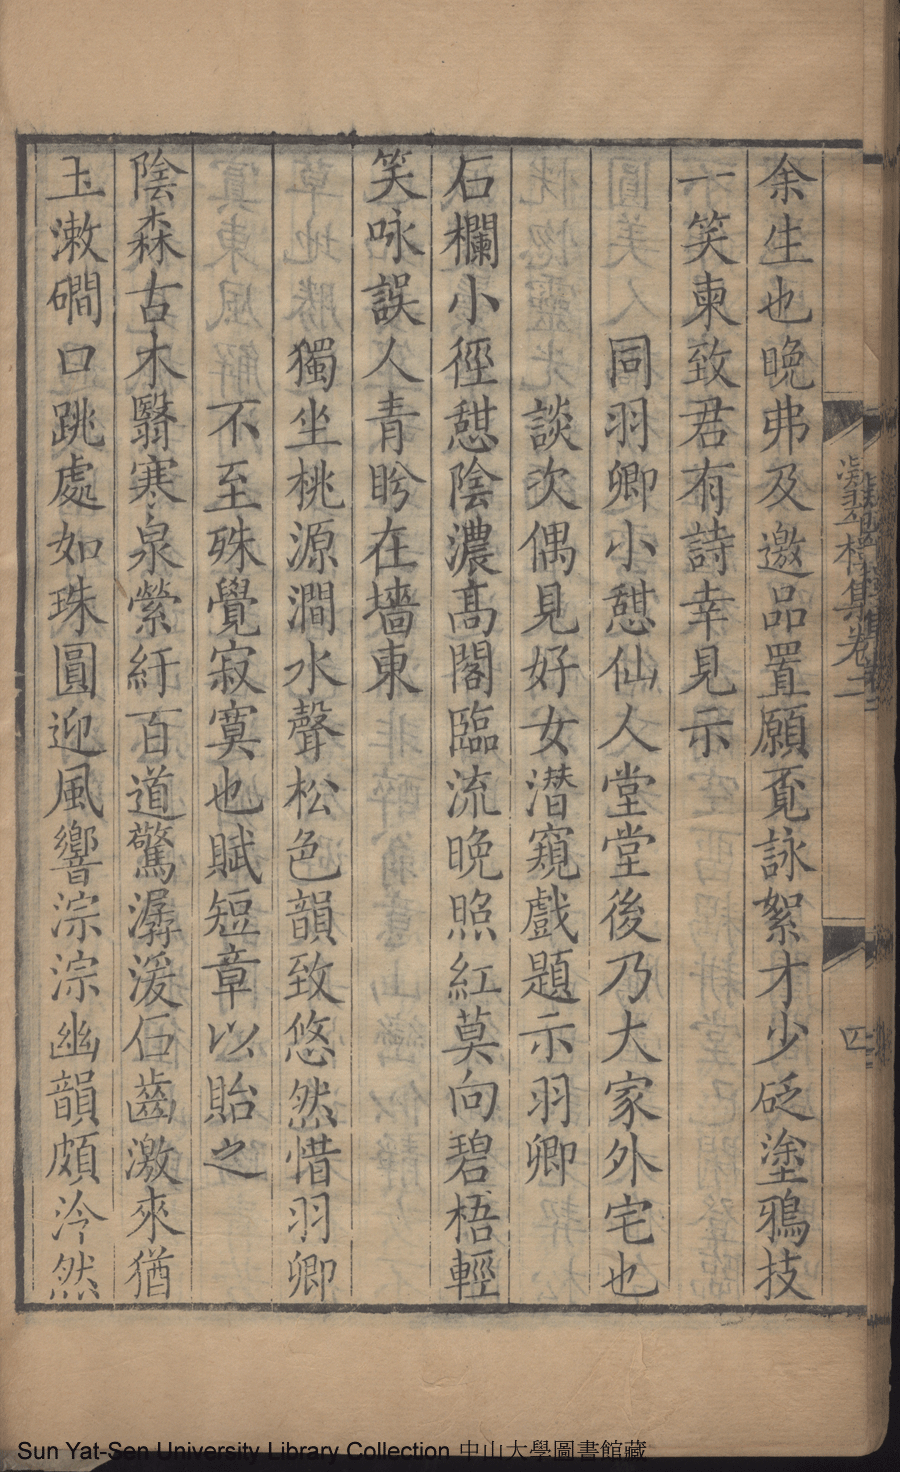 余生也晚弗及邀品置願寬詠絮才少砭塗鴉技
一笑柬致君有詩幸見示
同羽卿小憇仙人堂堂後乃大家外宅也
談次偶見好女潜窺戲題示羽卿
石欄小徑憇陰濃高閣臨流晚照紅莫向碧梧輕
笑咏誤人青盻在墻東
獨坐桃源澗水聲松色韻致悠然惜羽卿
不至殊覺寂寞也賦短章以貽之
陰森古木翳寒泉縈紆百道驚潺湲石齒激來猶
玉漱礀口跳處如珠圓迎風響淙淙幽韻頗泠然
集卷二
四
Sun Yat-Sen University Library Collection 中山大學圖書館藏